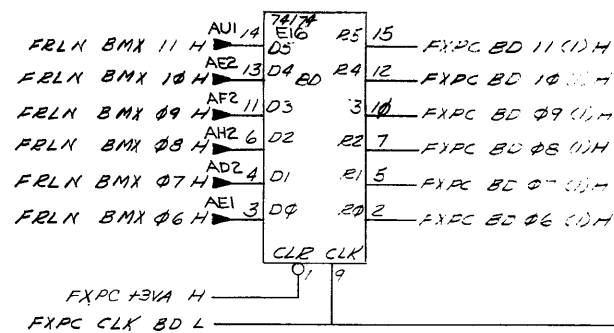 74174
E16
FRLN BMX 11 H AU1 14 D5 R5 15 FXPC BD 11 (1) H
FRLN BMX 1φ H AE2 13 D4 BD R4 12 FXPC BD 1φ H
FRLN BMX φ9 H AF2 11 D3 3 1φ FXPC BD φ9 (1) H
FRLN BMX φ8 H AH2 6 D2 R2 7 FXPC BD φ8 (1) H
FRLN BMX φ7 H AD2 4 D1 R1 5 FXPC BD φ7 (1) H
FRLN BMX φ6 H AE1 3 Dφ Rφ 2 FXPC BD φ6 (1) H
CLR CLK
1 9
FXPC +3VA H
FXPC CLK BD L